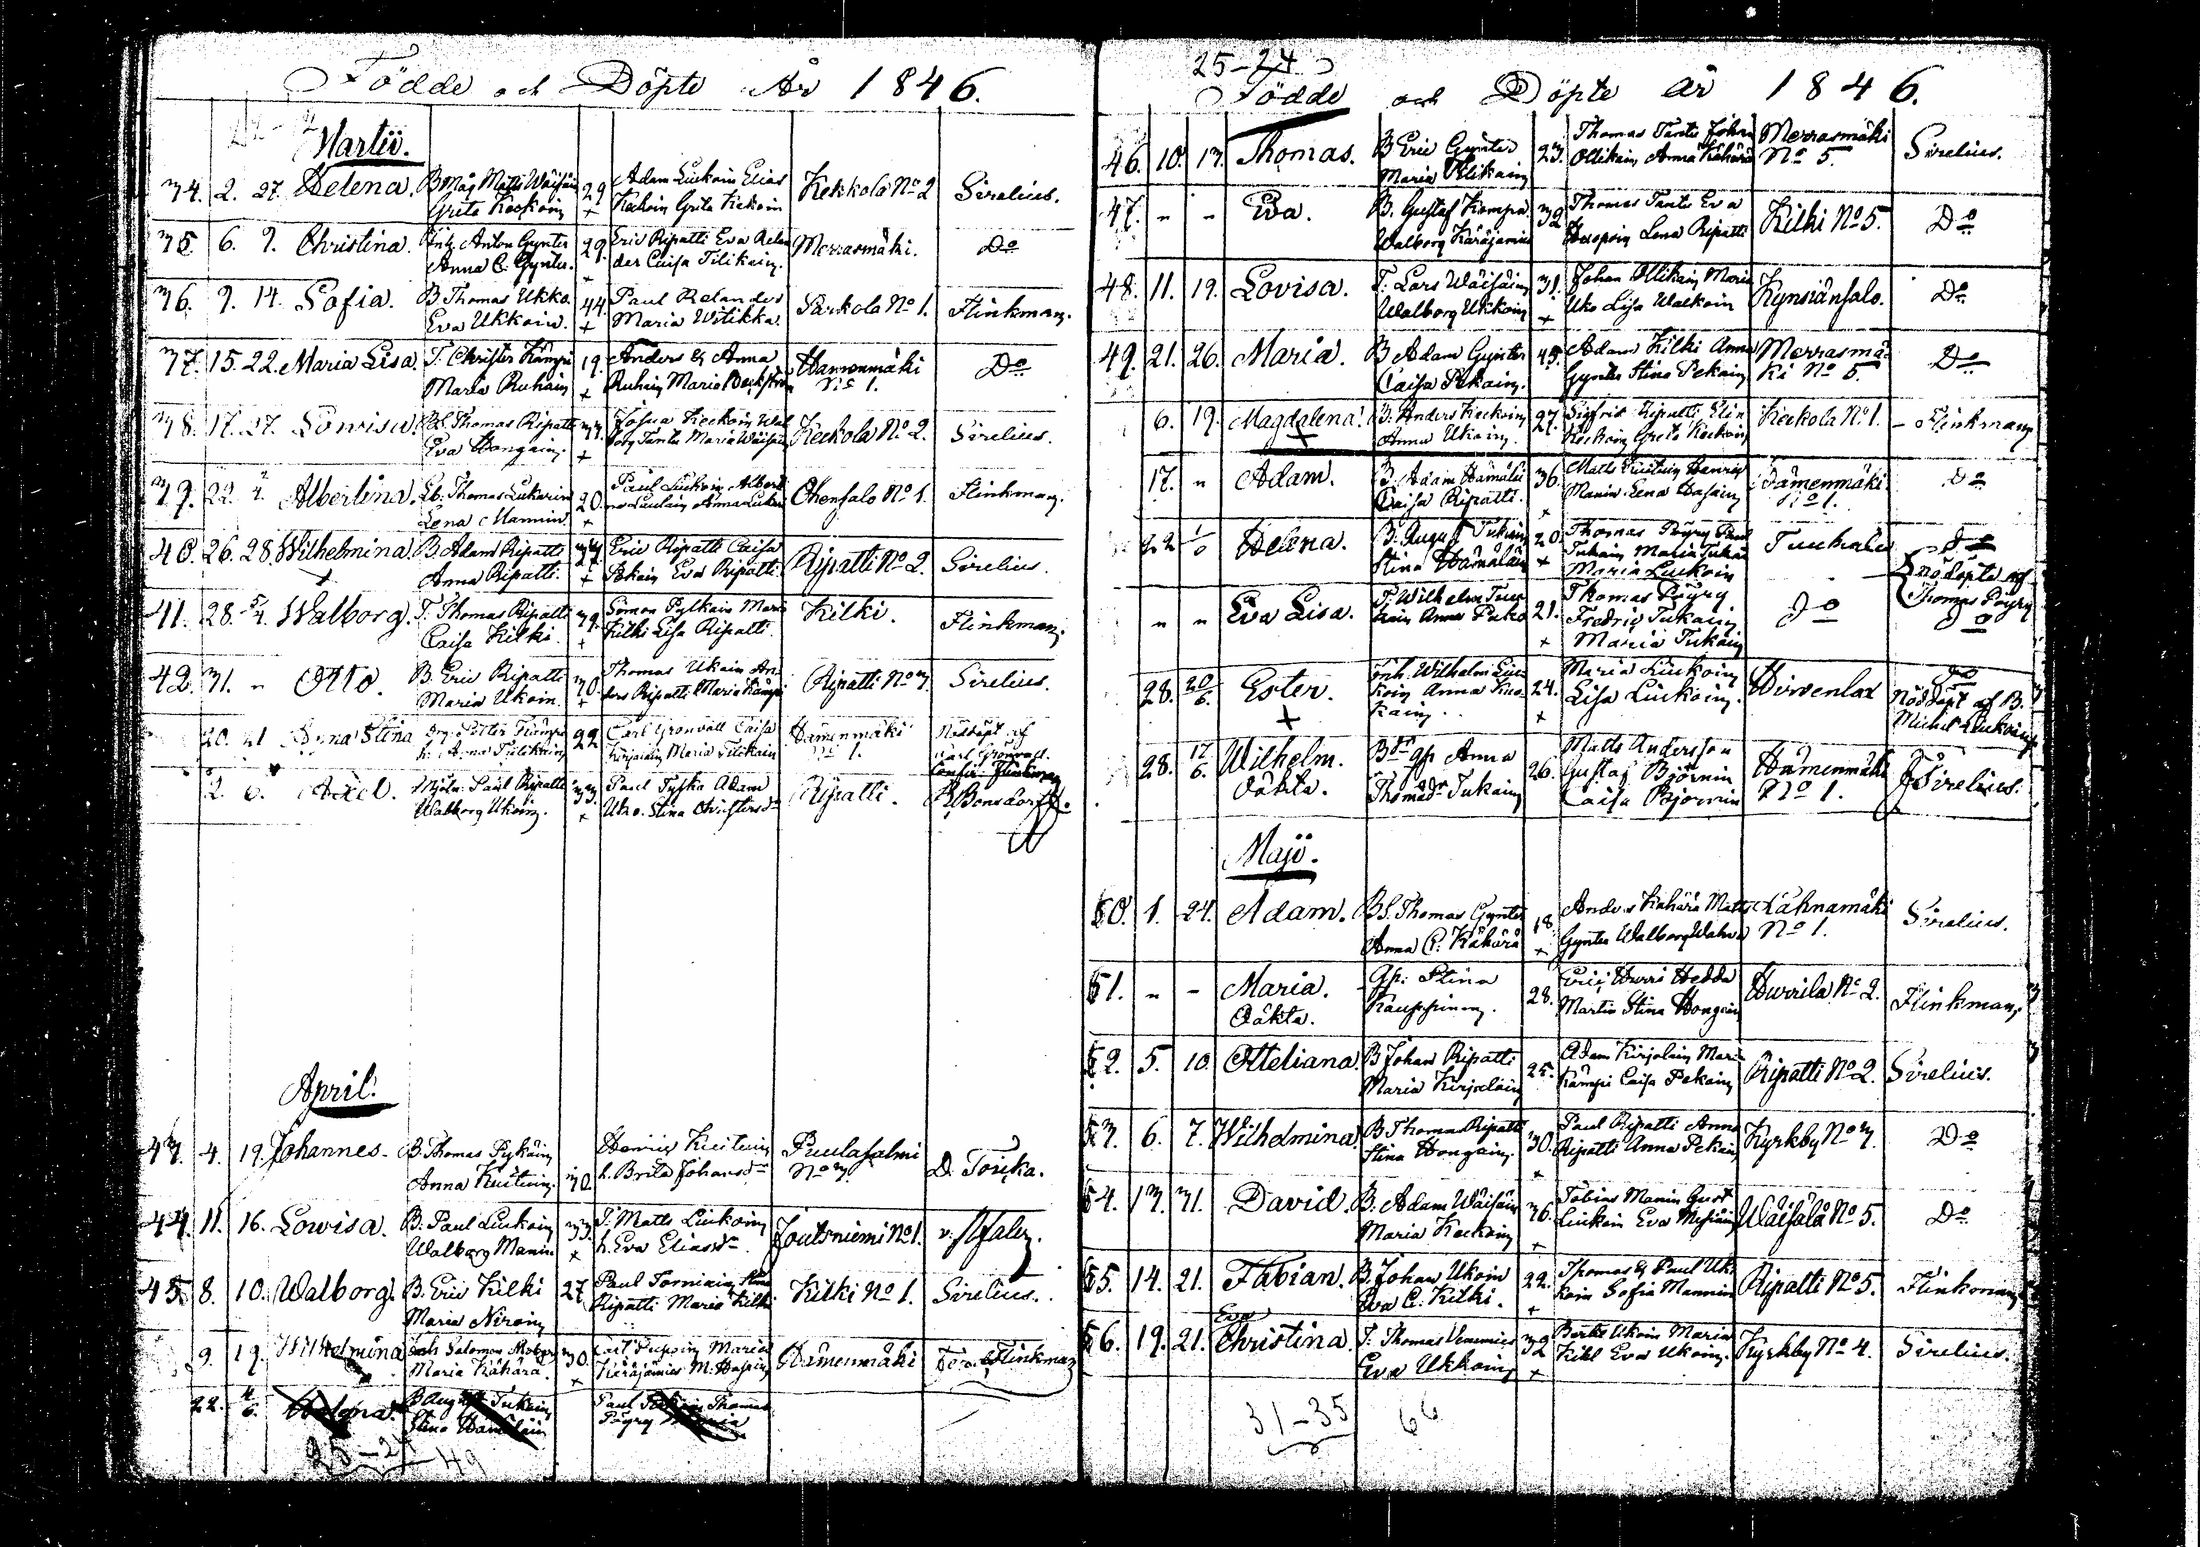 Födde och Döpte År 1846.
Martii.
34. 2. 27. Helena. B. Måg Matts Wäisäin Grita Keckoin 29 + Adam Luckoin Elias Keckoin Grita Keckoin Kekkola No 2 Sirelius.
35. 6. 9. Christina. Inh. Anton Gynter Anna C. Gynter. 29. Eric Ripatti Eva Relander Caisa Tilikain. Merrasmäki. Do
36. 9. 14. Sofia. B Thomas Ukko. Eva Ukkoin. 44. + Paul Relander Maria Witikka. Sarkola No 1. Flinkman.
37. 15. 22. Maria Lisa. T. Christer Kämpi Maria Ruhain 19. + Anders & Anna Ruhain Maria Beckström Hämenmäki No 1. Do
38. 17. 27. Lowisa. BS. Thomas Ripatti Eva Hongain. 33. + Josua Keckoin Walborg Tanttu Maria Wäisäin Keckola No 2. Sirelius.
39. 22. Albertina. Thomas Lukarin Lena Mannin. 20. + Paul Luckoin Albertina Laulain Anna Lukar Ohensalo No 1. Flinkman.
40. 26. 28. Wilhelmina. B Adam Ripatti Anna Ripatti. + Eric Ripatti Caisa Pekain Eva Ripatti Ripatti No 2. Sirelius.
41. 28. 5/4. Walborg. T. Thomas Ripatti Caisa Kilki 39. + Simon Pylkäin Maria Kilki Lisa Ripatti. Kilki. Flinkman.
42. 31. " Otto. B. Eric Ripatti Maria Ukoin. 30. + Thomas Ukain Anders Ripatti Maria Kämpi Ripatti No 3. Sirelius.
20. 21 Anna Stina Petter Kämpi h. Anna Tilikain 22 Carl Grönvall Caisa Kirjalain Maria Tilikain Hämenmäki No 1. Nöddöpt af Carl Grönvall. Confir. Flinkman
2. 6. Axel. Mjöln. Paul Ripatti Walborg Ukoin. 33. + Paul Tyska Adam Uko. Stina Christersdr Ripatti. Bonsdorff.
April.
43. 4. 19. Johannes. B. Thomas Pykäin Anna Kuitun. 30. Henric Kuitun h. Brita Johansdr Puulasalmi No 3. D. Toricka.
44. 11. 16. Lowisa. B. Paul Luckoin Walborg Manin. 33. + T. Matts Luckoin h. Eva Eliasdr Joutsniemi No 1. v. Pfaler.
45. 8. 10. Walborg. B. Eric Kilki Maria Niroin 27. Paul Torniain Stina Ripatti Maria Kilki Kilki No 1. Sirelius.
9. 19. Wilhelmina Inh Salomon Maria Kähärä. 30. + Carl Maria Käräjämies M. Haapin Hämenmäki Flinkman
22. Helena. B Aug Tukain Stina Hämäläin Paul Tukain Thomas Pöyry Maria
25-24 49
25-24
Födde och Döpte år 1846.
46. 10. 13. Thomas. B Eric Gynter Maria Tilikain 23. Thomas Tanttu Johan Ollikain, Anna Kähärä Merrasmäki No 5. Sirelius.
47. " " Eva. B. Gustaf Kompa. Walborg Käräjämies 32 Thomas Tanttu Eva Haapoin Lena Ripatti Kilki No 5. Do
48. 11. 19. Lovisa. T. Lars Wäisäin Walborg Ukkoin 31. + Johan Ollikain Maria Uko Lisa Walkoin Kynsiänsalo. Do
49. 21. 26. Maria. B Adam Gynter Caisa Pekain. 45. Adam Kilki Anna Gynter Stina Pekain Merrasmäki No 5. Do
6. 19. Magdalena. + B. Anders Keckoin Anna Ukoin. 27. Sigfrid Ripatti Elin Keckoin Greta Keckoin Keckola No 1. Flinkman
17. " Adam. B Adam Hämäläi Caisa Ripatti. 36. + Matts Henric Manin Lena Hasain Hämenmäki No 1. Do
22 Helena. B. August Tukain Stina Hämäläin 20. + Thomas Pöyry Paul Tukain Maria Tukain Maria Luckoin Tuukala Do Nödöpta af Thomas Pöyry
" " Eva Lisa. T. Wilhelm Tukain Anna 21. + Thomas Pöyry Fredric Tukain Maria Tukain Do Do
28. 20/6. Ester. + Inh. Wilhelm Luckoin Anna Kuokain. 24. + Maria Luckoin Lisa Luckoin. Hirvenlax Do Nöddöpt af B. Michel Luckoin
28. 17/6. Wilhelm. Oäkta. Bdr gp Anna Thomadr Tukain 26. Matts Andersson Gustaf Björnin Caisa Björnin Hämenmäki No 1. Sirelius.
Maji.
50. 1. 24. Adam. BS. Thomas Gynter Anna C. Kähärä 18. + Anders Kähärä Matts Gynter Walborg Lähnamäki No 1. Sirelius.
51. " - Maria. Oäkta. Gp. Stina Kauppinen. 28. Eric Hurri Hedda Martin Stina Hongain Hurrila No 2. Flinkman.
52. 5. 10. Otteliana. B Johan Ripatti Maria Kirjalain 25. Adam Kirjalain Maria Kämpi Caisa Pekain Ripatti No 2. Sirelius.
53. 6. 7. Wilhelmina B Thomas Ripatti Stina Hongain. 30. + Paul Ripatti Anna Ripatti Anna Pekain Kyrkby No 3. Do
54. 13. 31. David. B. Adam Wäisäin Maria Keckoin 36. + Tobias Manin Gust Luckoin Eva Wäisälä No 5. Do
55. 14. 21. Fabian. B. Johan Ukoin Eva C. Kilki. 22. + Thomas & Paul Ukkoin Sofia Mannin Ripatti No 5. Flinkman
56. 19. 21. Eva Christina. T. Thomas Eva Ukkoin 32 + Bertil Ukoin Maria Kikl Eva Ukoin. Kyrkby No 4. Sirelius.
31-35 66